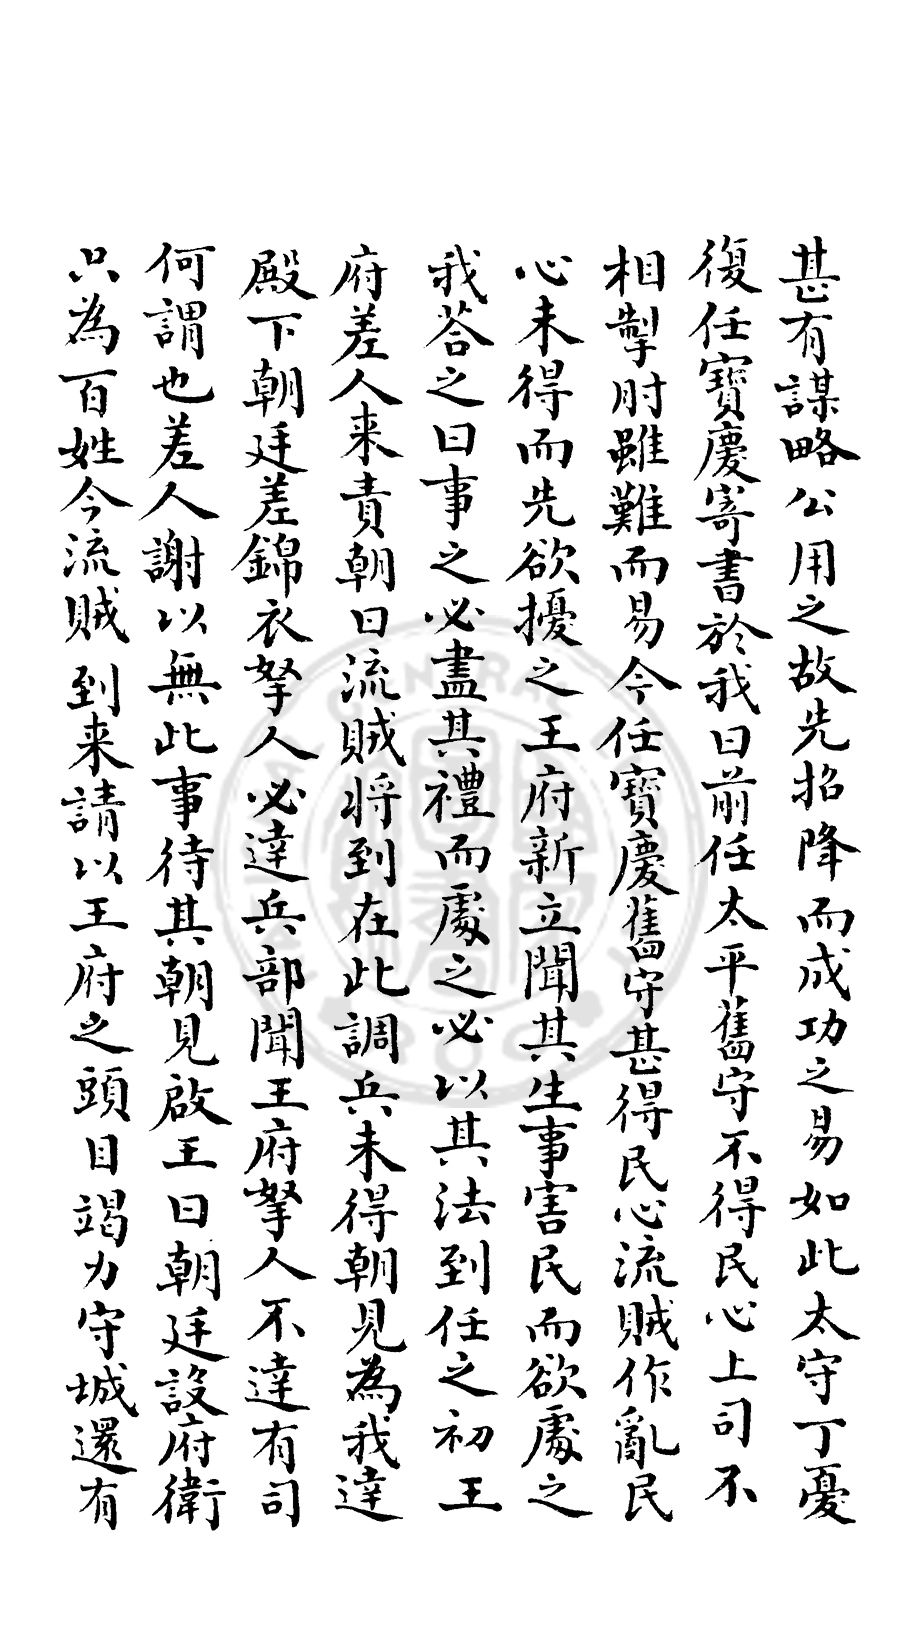 甚有謀略公用之故先招降而成功之易如此太守丁憂
復任寶慶寄書於我曰前任太平舊守不得民心上司不
相掣肘雖難而易今任寶慶舊守甚得民心流賊作亂民
心未得而先欲擾之王府新立聞其生事害民而欲處之
我荅之曰事之必盡其禮而處之必以其法到任之初王
府差人来責朝曰流賊将到在此調兵未得朝見為我達
殿下朝廷差錦衣拏人必達兵部聞王府拏人不達有司
何謂也差人謝以無此事待其朝見啟王曰朝廷設府衛
只為百姓今流賊到来請以王府之頭目竭力守城還有